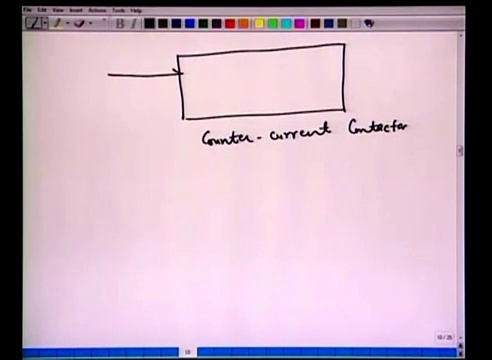 File Edit View Insert Actions Tools Help
Counter-current Contactor
10/25
10